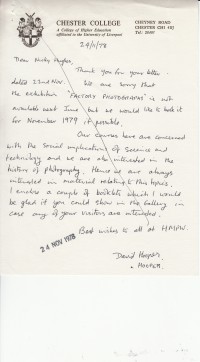 CHESTER COLLEGE
A College of Higher Education
affiliated to the University of Liverpool
CHEYNEY ROAD
CHESTER CH1 4BJ
Tel:
24/11/78
Dear Hughes,
Thank you for your letter
dated 22nd Nov. We are sorry that
the exhibition "FACTORY PHOTOGRAPHS" is not
available next June, but we would like to book it
for November 1979 if possible.
Our courses here are concerned
with the social implications of science and
technology and we are also interested in the
history of photography. Hence we are always
interested in material relating to this topics.
I enclose a couple of booklets which I would
be glad if you could show in the Gallery in
case any of your visitors are interested.
Best wishes to all at HMPW.
24 NOV 1978
David Hooper.
HOOPER.